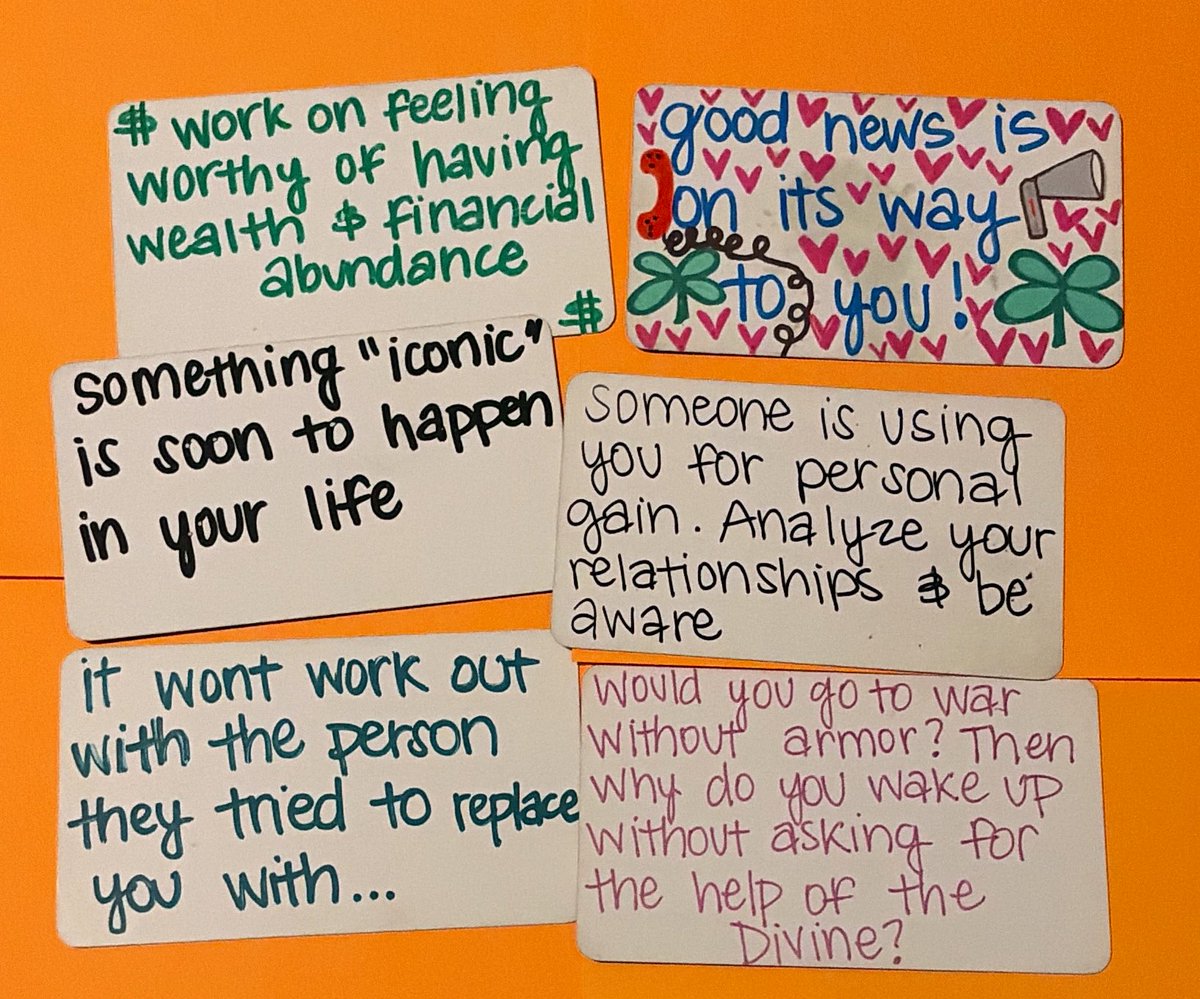 $ work on feeling
worthy of having
wealth $ financial
abundance
$
good news is
on its way
to you!
something "iconic"
is soon to happen
in your life
someone is using
you for personal
gain. Analyze your
relationships & be
aware
it wont work out
with the person
they tried to replace
you with...
would you go to war
without armor? Then
why do you wake up
without asking for
the help of the
Divine?